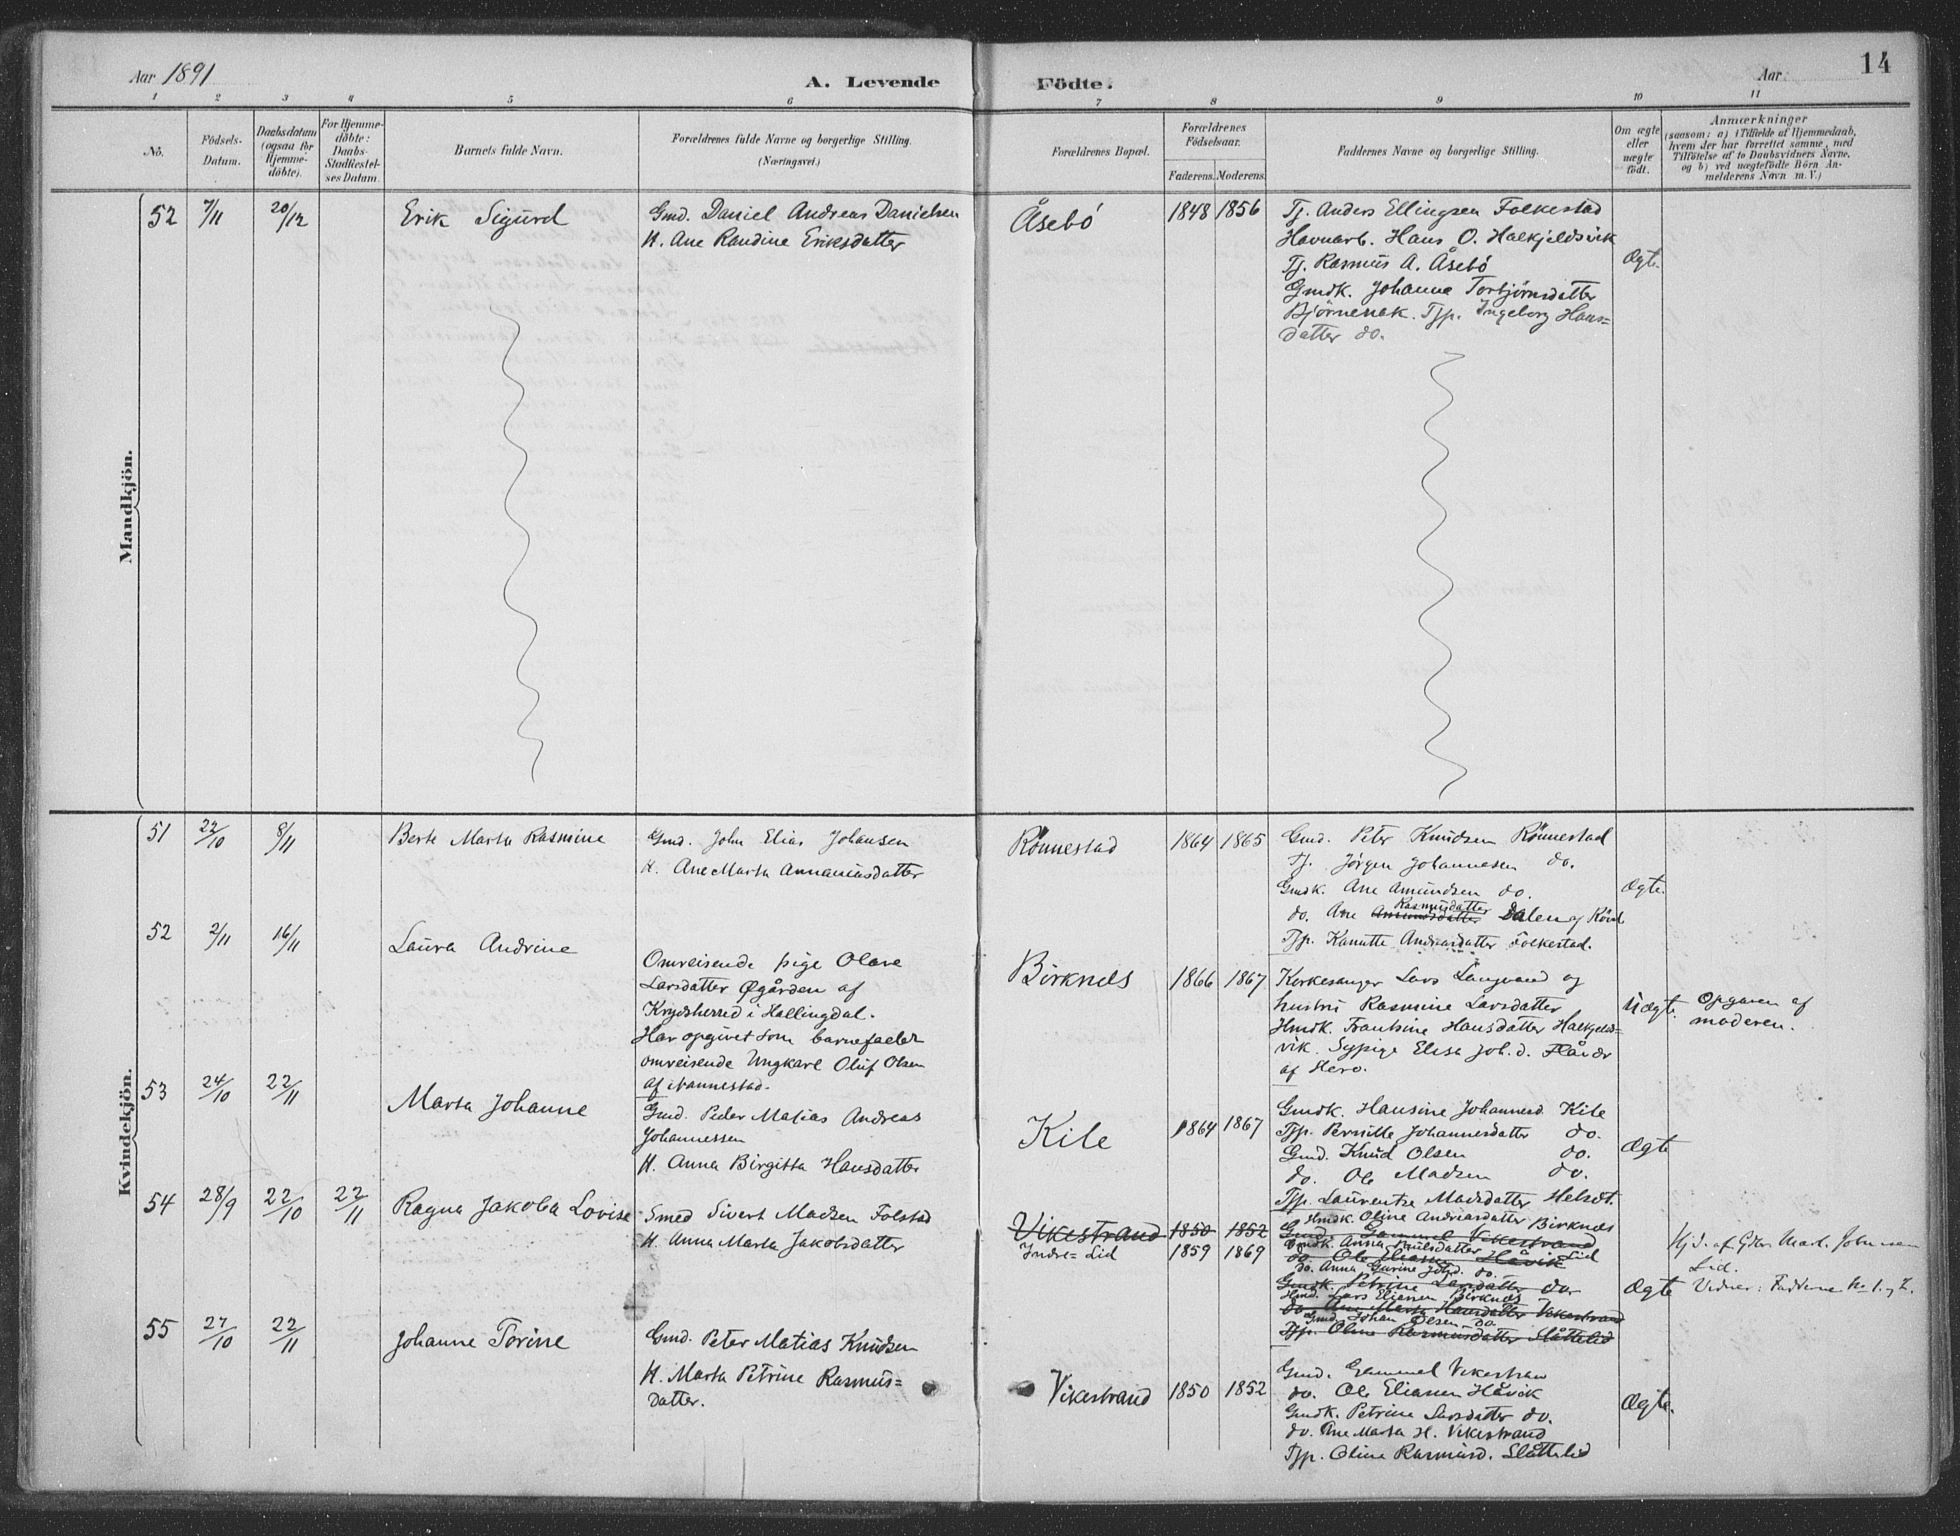 Aar 1891
A. Levende Födte.
Aar
14
1 2 3 4 5 6 7 8 9 10 11
No.
Födsels-Datum.
Daabsdatum (ogsaa for Hjemme-döbte).
For Hjemme-döbte: Daabs-Stadfæstel-ses Datum.
Barnets fulde Navn.
Forældrenes fulde Navne og borgerlige Stilling.
(Næringsvei.)
Forældrenes Bopæl.
Forældrenes Födselsaar.
Faderens. Moderens.
Faddernes Navne og borgerlige Stilling.
Om ægte eller uægte födt.
Anmærkninger
(saasom: a) i Tilfælde af Hjemmedaab,
hvem der har forrettet samme, med
Tilföielse af to Daabsvidners Navne,
og b) ved uægtefödte Börn An-
melderens Navn m. V.)
Mandkjön.
52 7/11 20/12 Erik Sigurd
Gmd. Daniel Andreas Danielsen
H. Ane Randine Eriksdatter
Åsebö 1848 1856
Tj. Anders Ellingsen Folkestad
Havnarb. Hans O. Halkjeldsvik
Tj. Rasmus A. Åsebö
Gmdk. Johanna Torbjörnsdatter
Björnenak. Tjp. Ingeborg Hans=
datter do.
Ægte.
Kvindekjön.
51 22/10 8/11 Berte Marta Rasmine
Gmd. John Elias Johansen
H. Ane Marta Annaniasdatter
Rönnestad 1864 1865
Gmd. Peter Knudsen Rönnestad
Tj. Jörgen Johannesen do.
Gmdk. Ane Amundsen do.
Rasmusdatter
do. Ane Amundsdatter Dalen
Tjp. Kanutte Andreasdatter Folkestad.
Ægte.
52 2/11 16/11 Laura Andrine
Omreisende pige Olave
Larsdatter Øgården af
Krydsherred i Hallingdal.
Har opgivet som barnefader
omreisende Ungkarl Oluf Olsen
af Nannestad.
Birknes 1866 1867
Kirkesanger Lars Langvand og
hustru Rasmine Larsdatter
Hmdk. Frantsine Hansdatter Halkjelds=
vik. Sypige Elisa Joh.d. Flåvær
af Herö.
Uægte.
Opgaven af
moderen.
53 24/10 22/11 Marta Johanne
Gmd. Peder Matias Andreas
Johannessen
H. Anna Birgitta Hansdatter
Kile 1864 1867
Gmdk. Hansine Johannesd. Kile
Tjp. Pernille Johannesdatter do.
Gmd. Knud Olsen do.
do. Ole Madsen do.
Tjp. Laurentse Madsdatter Helset.
Ægte
54 28/9 22/10 22/11 Ragna Jakoba Lovise
Smed Sivert Madsen Folstad
H. Anna Marta Jakobsdatter
Vikestrand 1850 1852
Indre= Lid 1859 1869
Hmdk. Oline Andreasdatter Birknes
Gmd. Gammel Vikestrand
Gmdk. Anna Nilsdatter Lid
do. Ole Eliassen Håvik
do. Anna Gurine do.
Gmdk. Petrine Larsdatter do.
Hmd. Lars Eliassen Birknes
do. Ane Marta Hansdatter Vikestrand
Gmd. Johan Olsen do
Tjp. Oline Rasmusdatter Slåttelid
Ægte
Hjd. af Gdbr. Mart. Johnsen
Lid.
Vidner: Fadderne No 1 og 2.
55 27/10 22/11 Johanne Torine
Gmd. Peter Matias Knudsen
H. Marta Petrine Rasmus=
datter.
Vikestrand 1850 1852
Gmd. Gammel Vikestran
do. Ole Eliassen Håvik
Gmdk. Petrine Larsdatter do.
do. Ane Marta H. Vikestrand
Tjp. Oline Rasmusd. Slåttelid
Ægte.